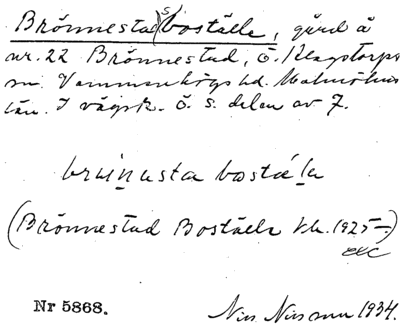 Brönnestad(s)boställe, gård å
nr. 22 Brönnestad, Ö. Klagstorps
sn. Vemmenhögs hd. Malmöhus
län. I vägsk. ö. s. delen av 7.
brủinasta bostála
(Brönnestad Boställe kk. 1925–.)
etc
Nr 5868.
Nils Nilsson 1934.